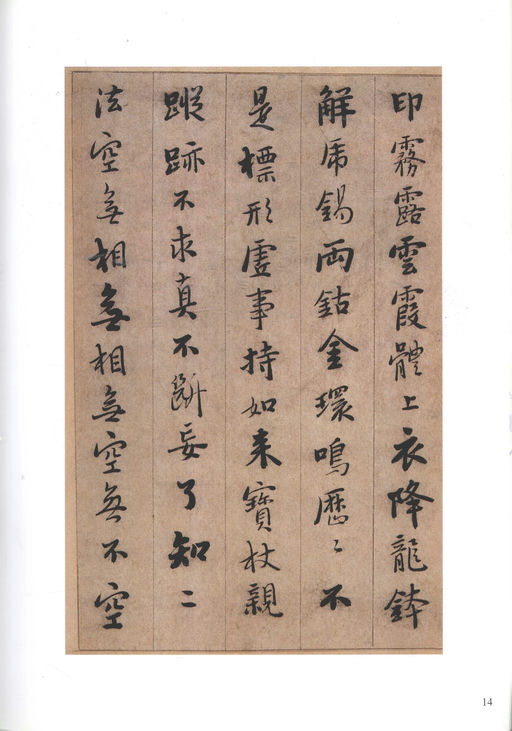 印霧露雲霞體上衣降龍鉢
解虎錫兩鈷金環鳴歷〻不
是標形虛事持如来寶杖親
蹤跡不求真不斷妄了知二
法空無相無相無空無不空
14